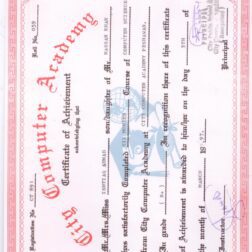 Registration No CT 891
Roll No. 059
City Computer Academy
Certificate of Achievement
acknowledging that
Mr./Mrs./Miss ISHTIAQ AHMAD
son/daughter of Mr. HASSAN KHAN
has satisfactorily Completed SIX MONTHS Course of COMPUTER SCIENCE
from City Computer Academy at CITY COMPUTER ACADEMY PESHAWAR.
and obtained grade
In recognition there of this
of Achievement is awarded to him/her on the day
in the month of MARCH 1997.
Principal